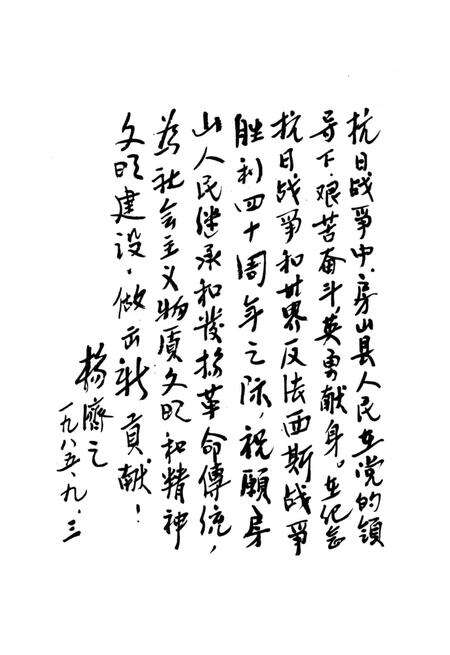 抗日战爭中，房山县人民在党的領
导下，艰苦奋斗，英勇献身。在纪念
抗日战爭和世界反法西斯战爭
胜利四十周年之际，祝願房
山人民继承和发扬革命傳统，
为社会主义物质文明和精神
文明建设，做出新貢献！
杨濟之
一九八五、九、三